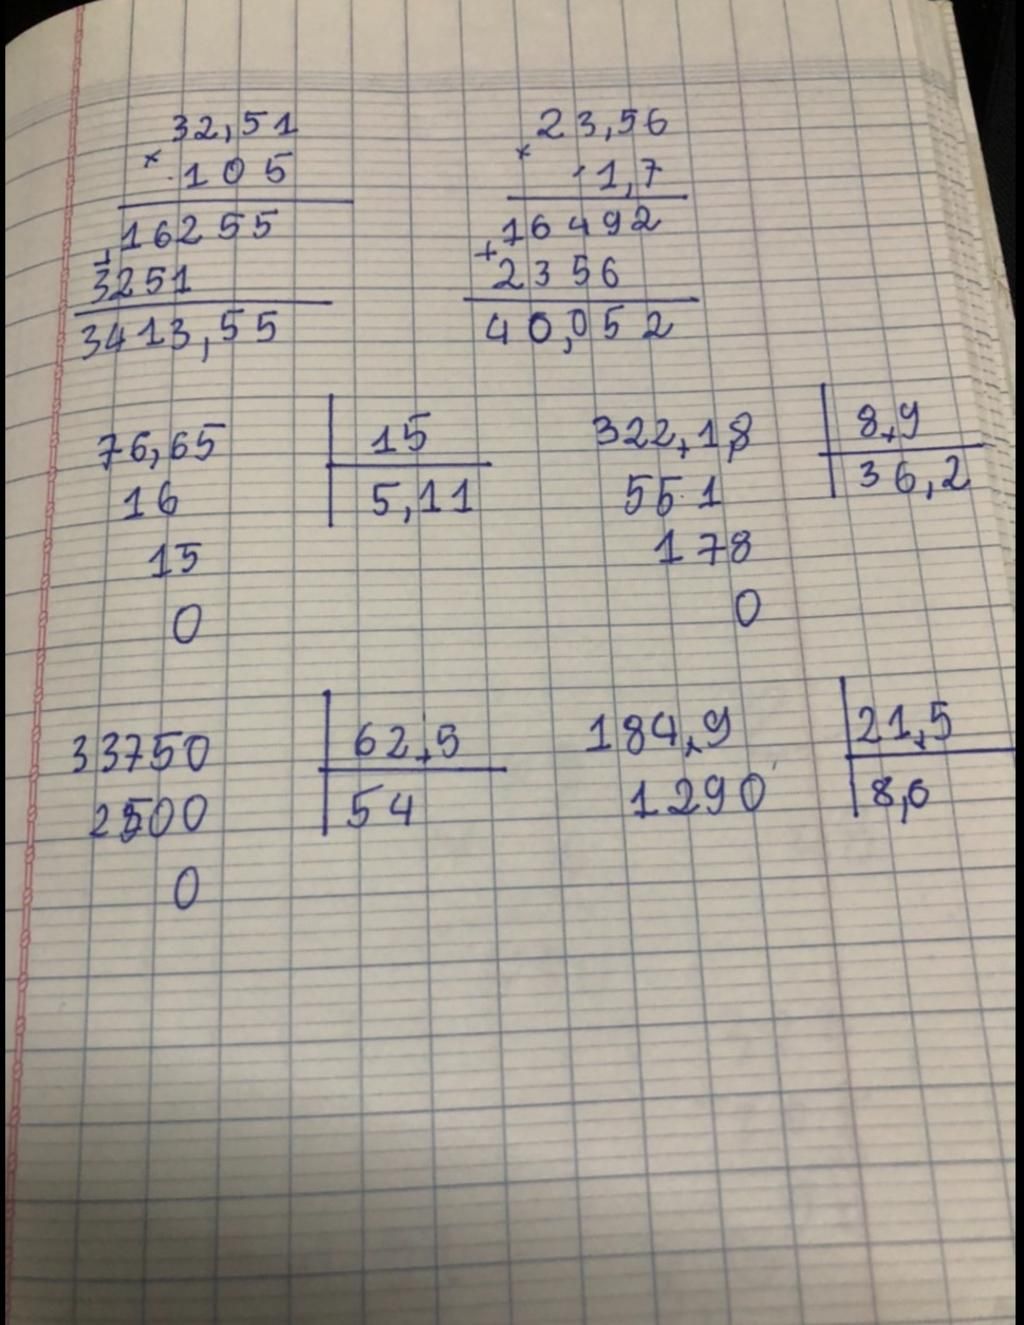 32,51
× 105
16255
+
3251
3413,55
23,56
× 1,7
16492
+
2356
40,052
76,65 15
16 5,11
15
0
322,18 8,9
551 36,2
178
0
33750 62,5
2500 54
0
184,9 21,5
1290 8,6